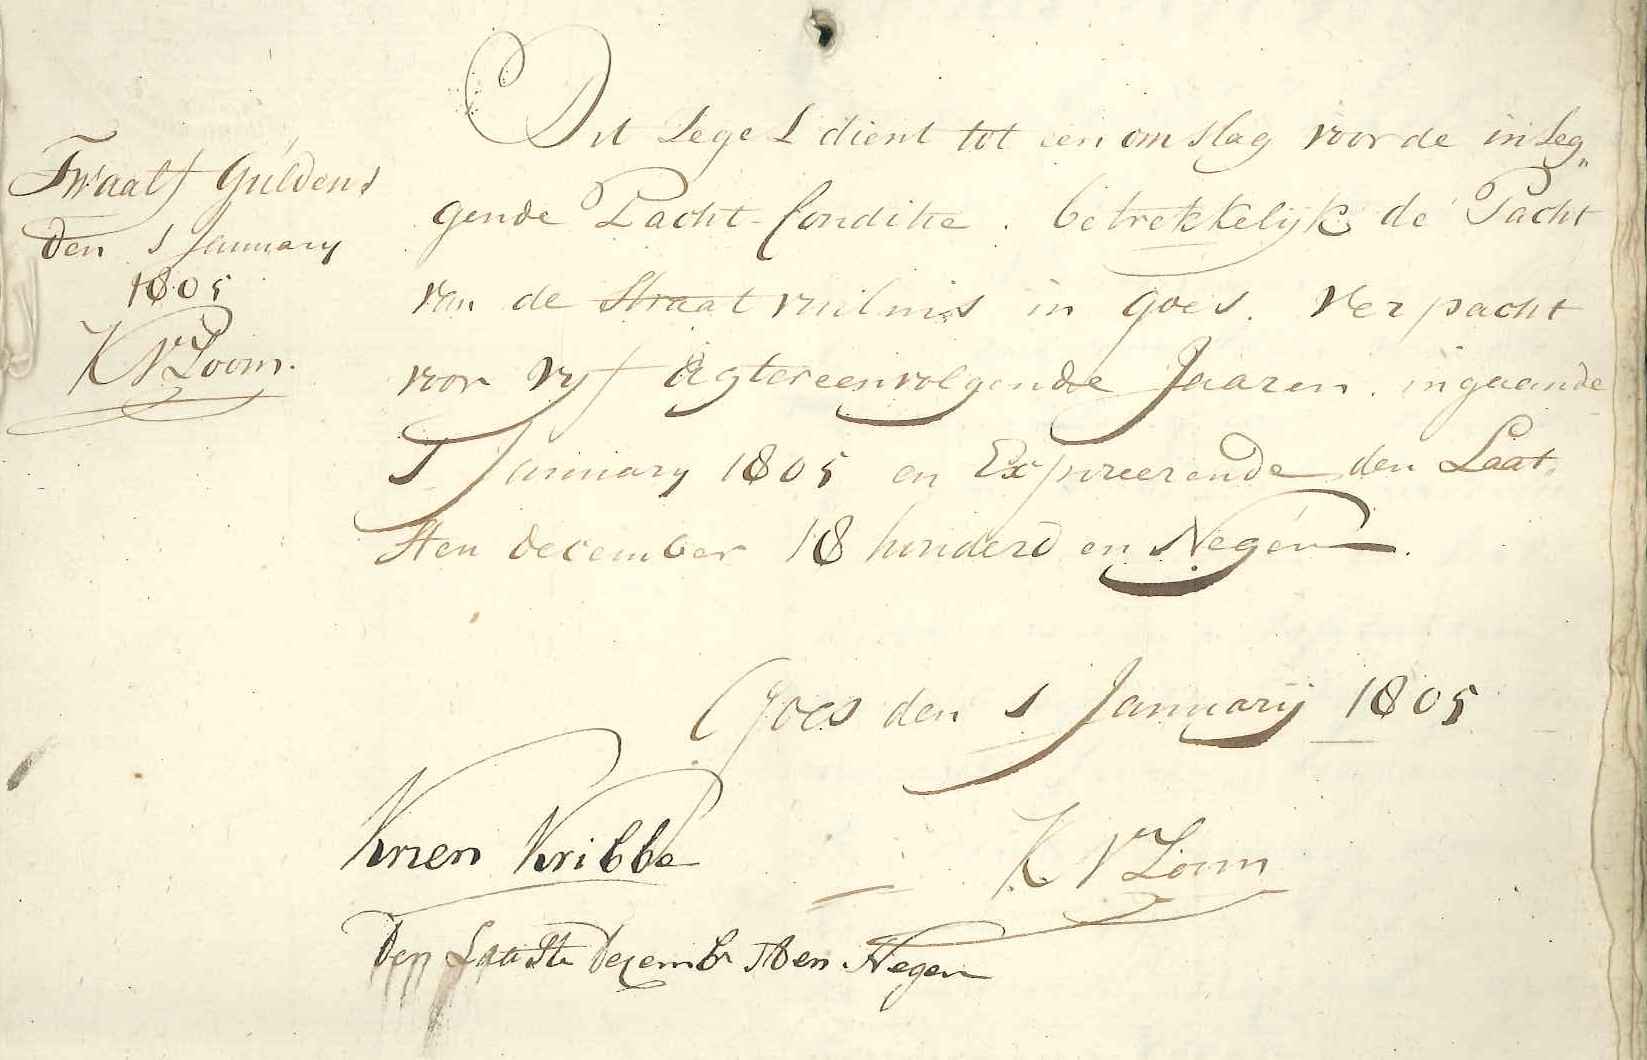 Twaalf Guldens
den 1 January
1805
K V Loom.
Dit Segel dient tot een omslag voor de inleg„
gende Pacht-Conditie. betrekkelijk de Pacht
van de Straatvuilnis in Goes. Verpacht
voor vyf Agtereenvolgende Jaaren. ingaande
1 January 1805 en Expireerende den Laat„
sten december 18 honderd en Negen.
Goes den 1 Januarij 1805
Krien Kribbe
K V Loom
Den Laatste Decemb 18 en Negen